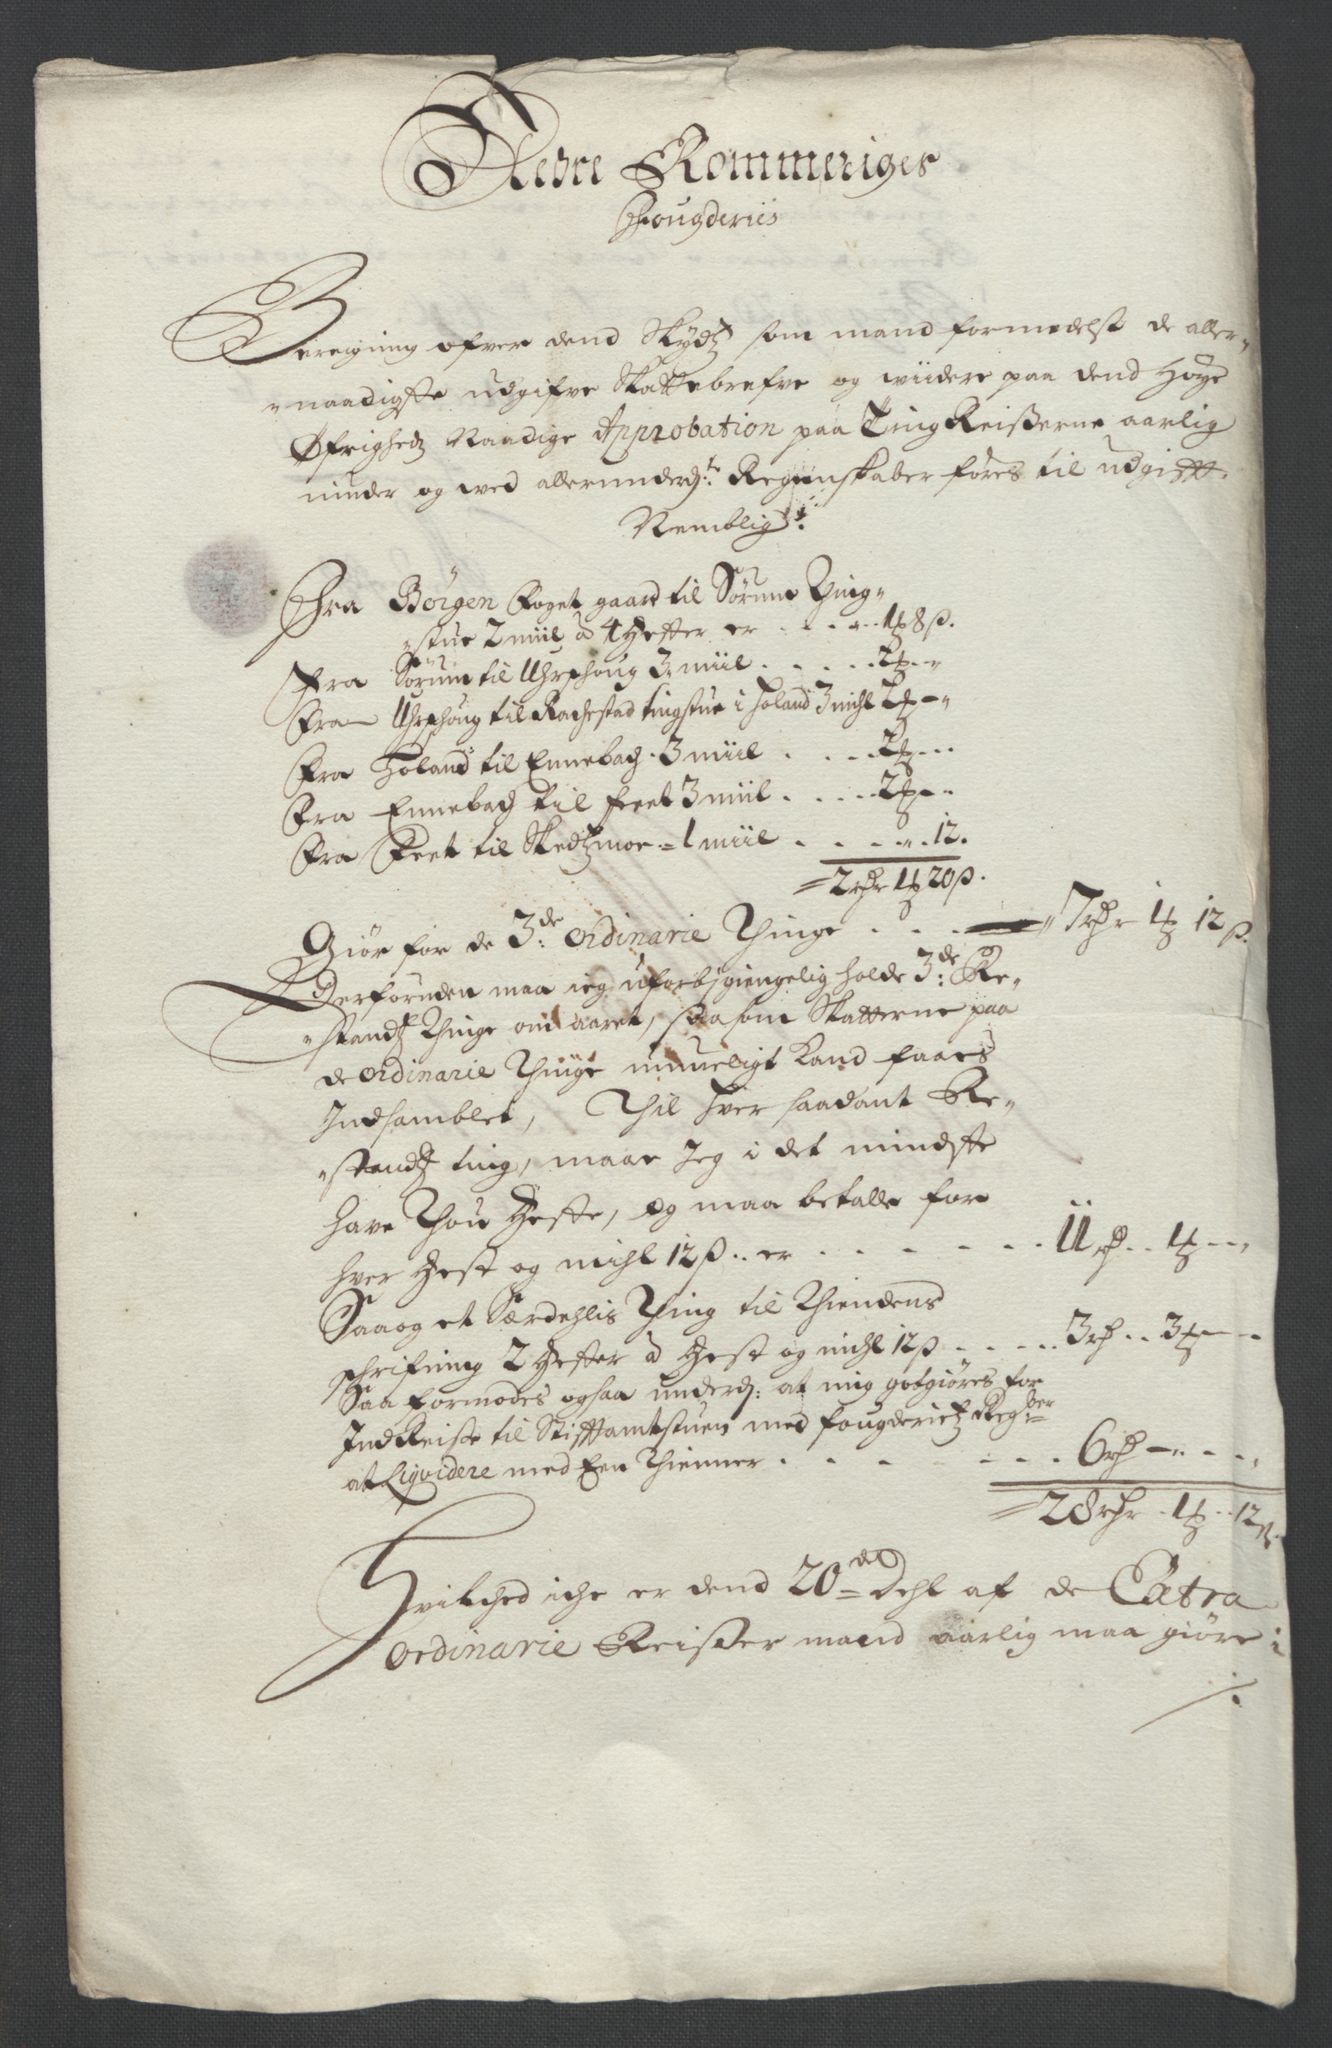 Nedre Rommeriges
Fougderies
Bereigning ofver dend Skydtz som mand formedelst de aller„
„naadigste udgifve Skattebrefve og wiidere paa dend Høye
Øfrigheds Naadige Approbation paa Ting Reiserne aarlig
niuder og wed allerunderd:te Regenskaber føres til udgifft.
Nemblig:
Fra Børgen Foget gaard til Sørum Ting„
„stue 2 miil a 4 Hester er . . . . 1 ꝑ 8 ß.
Fra Sørum til Uhrshoug 3 miil . . . . 2 ꝑ - „
Fra Uhrshoug til Rachestad tingstue i Holand 3 miihl 2 ꝑ - „
Fra Holand til Ennebach 3 miil . . . . 2 ꝑ - -
Fra Ennebach til Feet 3 miil . . . . 2 ꝑ - -
Fra Feet til Skedtzmoe = 1 miil . . . . „ 12.
= 2 rdr 1 ꝑ 20 ß.
Giør for de 3de ordinarie Thinge . . . 7 rdr 1 ꝑ 12 ß.
Derforuden maa ieg uforbigiengelig holde 3de Re„
„standtz Thinge om aaret, saasom Skatterne paa
de ordinarie Thinge umueligt kand faaes
Indsamblet, Thil hver saadant Re„
„standtz ting, maae Jeg i det mindste
have Thou Heste, og maa betalle for
hver Hest og miihl 12 ß .. er . . . . . . 11 rd .. 1 ꝑ - „
Saa og et Særdehlis Thing til Thiendens
schrifning 2 Hester a Hest og miihl 12 ß . . . . 3 rd .. 3 ꝑ - -
Saa formodes ogsaa underd: at mig godtgiøres for
Ind Reise til Stifftamtstuen med fougderietz Regber
at Liqvidere med Een Thienner . . . . . . 6 rd - „ - -
= 28 rdr . 1 ꝑ .. 12 ß.
Hvilched iche er dend 20de Dehl af de Extra
ordinarie Reiser mand aarlig maa giøre i